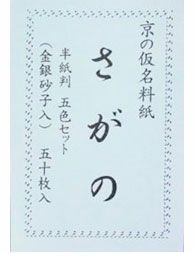 京の仮名料紙
さがの
半紙判 五色セット
(金銀砂子入) 五十枚入